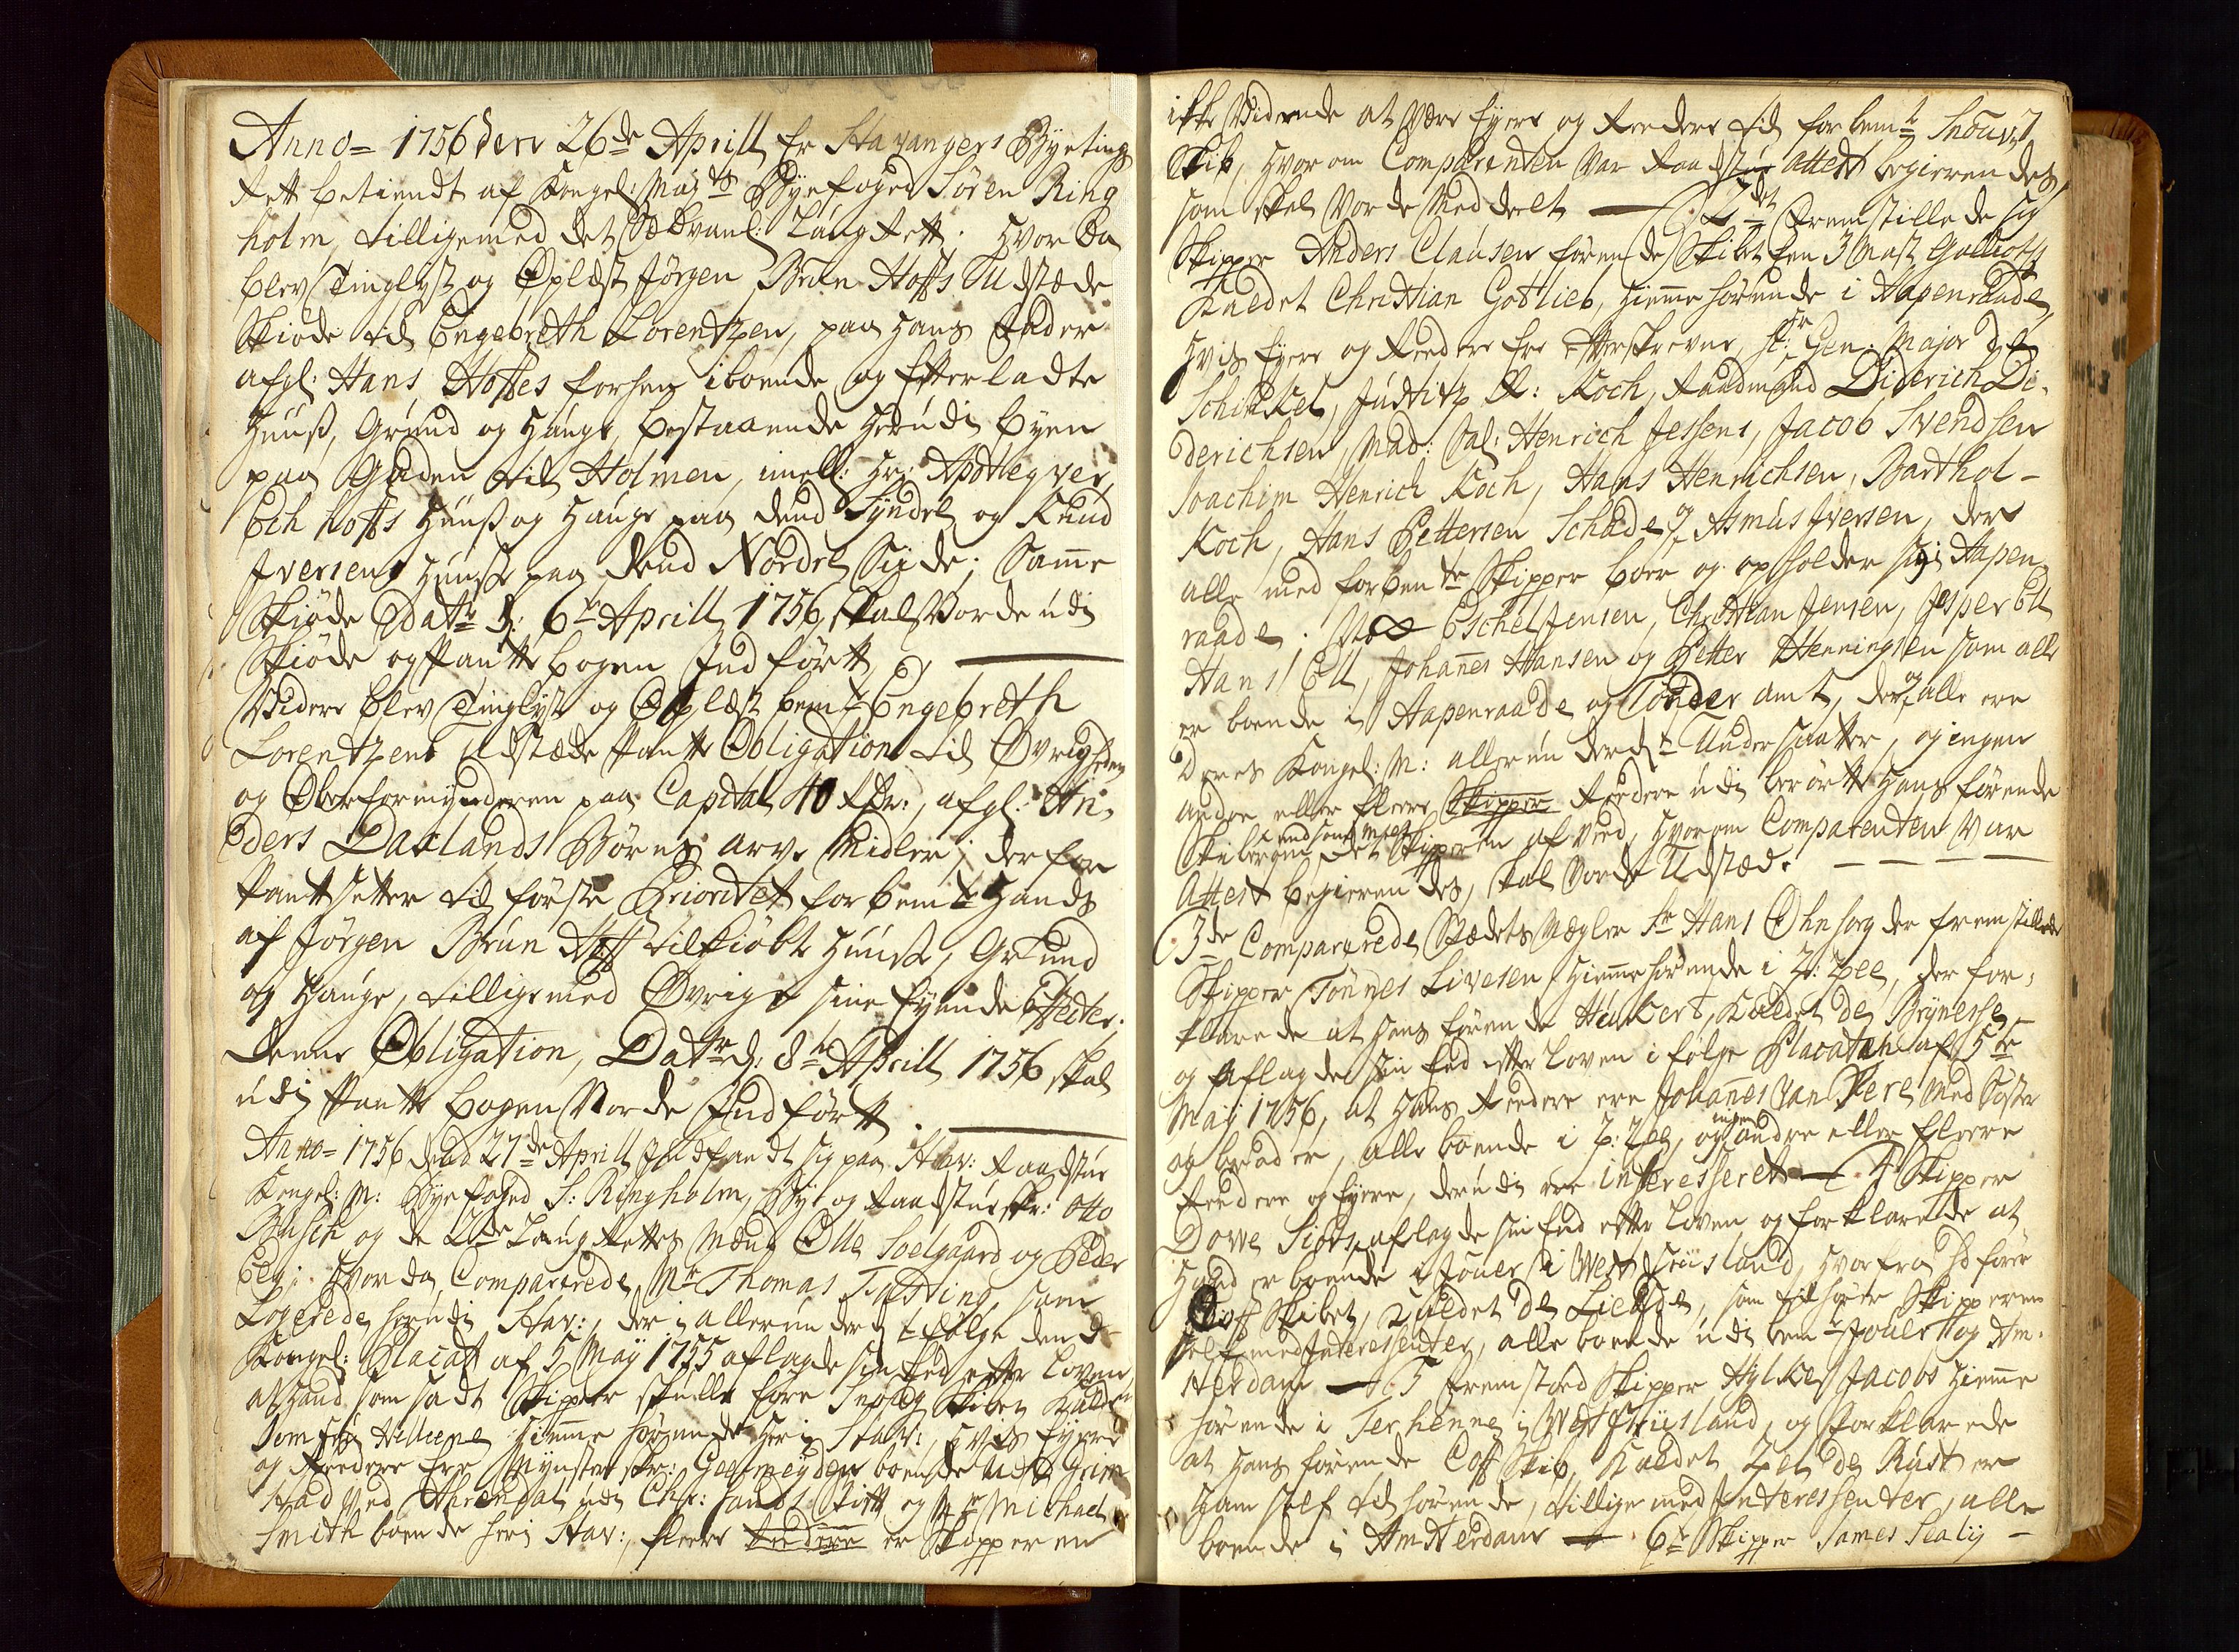 Anno = 1756 den 26de Aprill er Stavangers Byetings
Rett betiendt af Kongel: May:ts Byefoged Søren Ring
holm, tilligemed det Sædvanl: Laug Rett. Hvor da
blev Tinglyst og Oplæst Jørgen Brun Hoffs Udstæde
Skiøde til Engebreth Lorentzen, paa Hans Fader
afgl: Hans Hoffes forhen iboende og Efterladte
Huuß, Grund og Hauge, bestaaende Herudi Byen
paa Gaden til Holmen, imell: Hr: Apotteqver
Ech hoffs Huuß og Hauge paa dend Syndre og Knud
Iversens Huuse paa dend Nordre Siide; Samme
Skiøde Datr: d: 6te Aprill 1756 skal Vorde udi
Skiøde og Pantte bogen Indført
Videre blev Tinglyst og Oplæst bemte Engebreth
Lorentzens Udstæde Pantte Obligation til Øvrigheden
og Overformynderen paa Capital 40 Rdr:, afgl: An-
ders Daxlands Børns arve Midler; derfor
Pantsetter til første Prioritet forbemte Hands
af Jørgen Brun Hoff tilkiøbte Huuse, Grund
og Hauge, tilligemed Øvrige sine Eyende Effecter.
Denne Obligation, Datr: d: 8de Aprill 1756 skal
udi Pantte bogen Vorde Indført.
Anno = 1756 dend 27de Aprill Indfandt sig paa Stav: Raadstue
Kongel: M: Byefoged S: Ringholm, Bye og Raadstueskr: Otto
Busch og de 2de Laug Rettes Mænd Olle Soelgaard og Peder
Eeg; Hvorda Comparerede Mr Thomas Tusting, som
Logerede herudi Stav:, der i allerunderd:t følge dend
Kongel: Placat af 5 May 1755 aflagde sin Eed efter Loven,
at Hand som sadt Skipper skulle føre Snoug Skibet Kaldet
Jomfru Helliene Hiemme hørende Her i Stav:, Hvis Eyere
og Reedere ere Mynster skr: Geelmeyden boende ved Grim
stad Ved Ahrendal udi Chr: sands Stift og Mr Michael
Smith boende her i Stav:, fleere Reedere er Skipperen
ikke Vidende at Være Eyere og Reedere til forbemte Snouv
Skib, Hvorom Comparenten Var Raadstue attest begierendes,
som skal Vorde Meddeelt — 2det Fremstillede sig
Skipper Anders Clausen førende Skibet Een 3 Mast Galliott,
Kaldet Christian Gotlieb, Hiemmehørende i Aapenraade,
Hvis Eyere og Reedere ere Efterskrevne, Hr: Gen: Major de
Schinkel, Justitz R: Koch, Raadmand Diderich Di-
derichsen, Mad: Sal: Henrich Jessens, Jacob Svendsen
Joachim Henrich Koch, Hans Henrichsen, Barthol-
Koch, Hans Pettersen Schade og Asmus Iversen, der
alle med forbemte Skipper boer og opholder sig i Aapen-
raade; Eschel Jensen, Christian Jensen, Jesper Ell
Hans Ell, Johannes Hansen og Petter Henningsen som alle
er boende i Aapenraade og Tonder amt, der og alle ere
Deres Kongel: M: allerunderd:te Undersaatter, og ingen
andre eller fleere Skipper Reedere udi berørte Hans førende
Skib end som meldt Skipperen af Veed, Hvorom Comparenten Var
Attest begierendes, skal Vorde Udstæde.
3de Comparerede Stædets Mægler Sr Hans Ohnsorg der fremstillede
Skipper Tonnes Livesen Hiemmehørende i Z: Zee, der for-
klarede at Hans førende Hukert, Kaldet de Brynesse,
og aflagde sin Eed efter Loven i følge Placaten af 5te
May 1756, at Hans Reedere ere Johannes van Pere med Søster
og broder, alle boende i Z: Zee, og ingen andre eller fleere
Reedere og Eyere, derudi ere interesseret — 4 Skipper
Dowe Siords aflagde sin Eed efter Loven og forklarede at
Hand er boende i Jouer i West Friisland, Hvorfra Hd fører
Coff Skibet, Kaldet de Liefde, som tilhører Skipperen
self med Interessenter, alle boende udi bemte Jouer og Am-
sterdam — 5 Fremstoed Skipper Hylkes Jacobs Hiemme
hørende i Terhenne i West Friisland, og forklarede
at Hans førende Coff Skib, Kaldet Zee de Rust er
Ham self tilhørende, tillige med Interessenter, alle
boende i Amsterdam — 6te Skipper James Sealy —